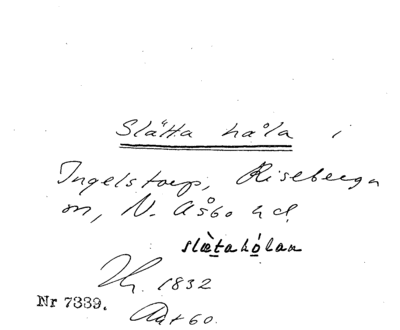 Slätta håla i
Ingelstorp, Riseberga
sn, N. Åsbo hd.
slætahólan
1832
Nr 7339.